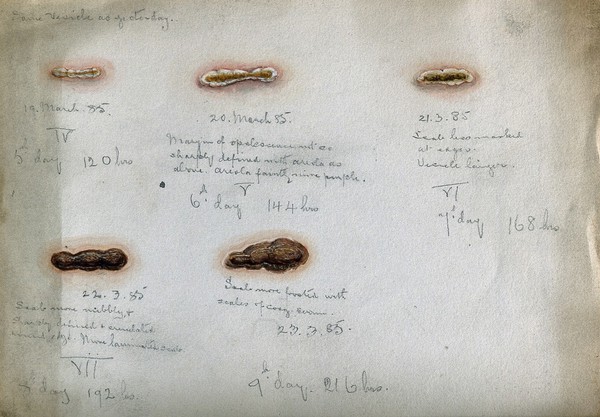 Same vesicle as yesterday.
19. March. 85.
IV
5th day 120 hrs
20. March 85.
Margin of opalescence not so
sharply defined with areola as
above. Areola faint, more purple.
V
6th day 144 hrs
21.3.85
Scab less marked
at edges.
Vesicle larger.
VI
7th day 168 hrs
22.3.85
Scab more nibbly,
defined & crenulated
More laminated scab
VII
day 192 hrs.
Scab more frosted with
scales of serum.
23.3.85.
9th day. 216 hrs.